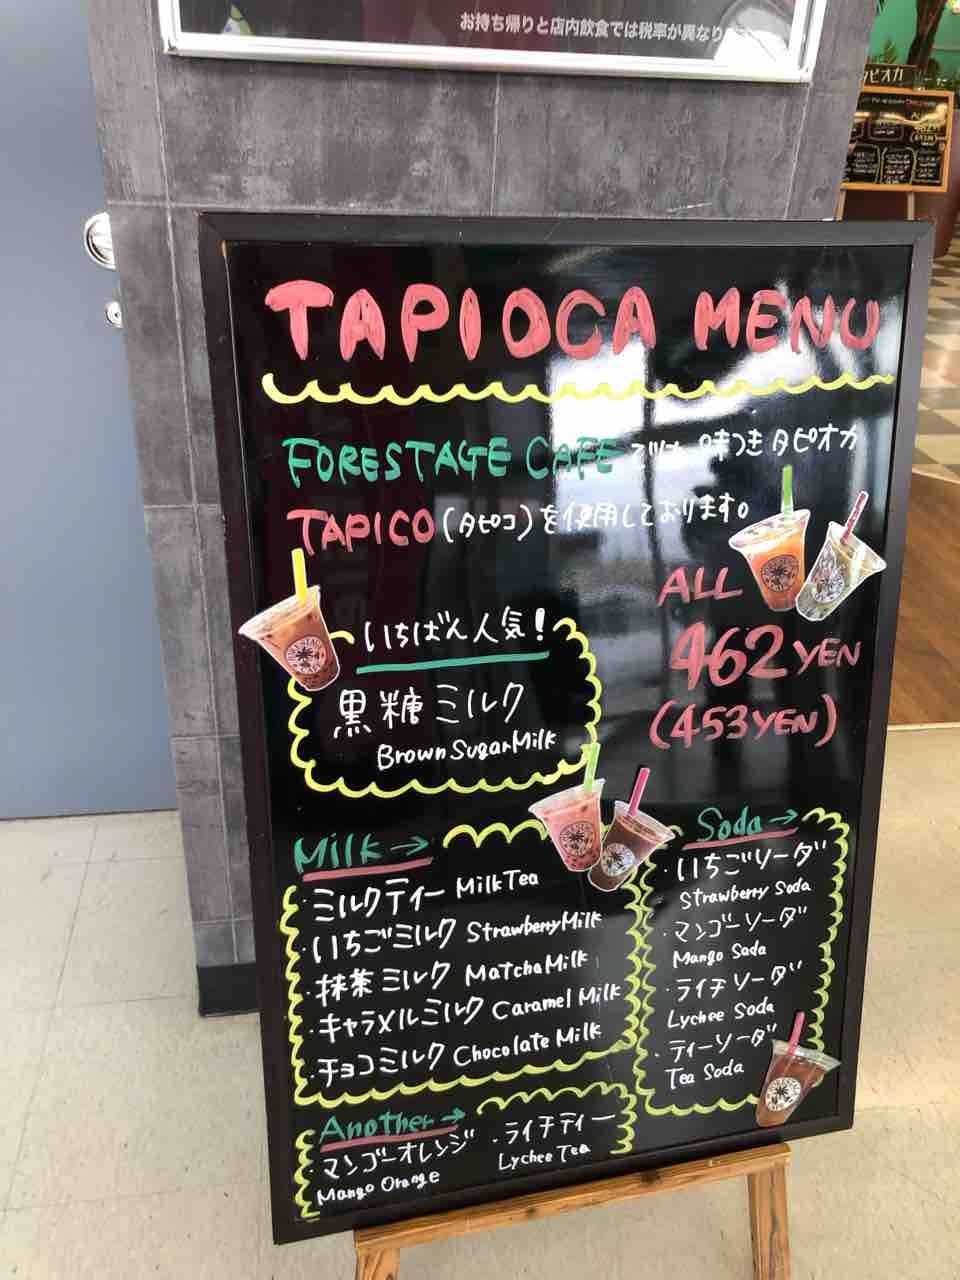 お持ち帰りと店内飲食では税率が異なり
タピオカ
TAPIOCA MENU
FORESTAGE CAFE では 味つきタピオカ
TAPICO(タピコ)を使用しております。
ALL
462 YEN
(453YEN)
いちばん人気!
黒糖ミルク
Brown Sugar Milk
Milk→
・ミルクティー Milk Tea
・いちごミルク Strawberry Milk
・抹茶ミルク Matcha Milk
・キャラメルミルク Caramel Milk
・チョコミルク Chocolate Milk
Soda→
・いちごソーダ
Strawberry Soda
・マンゴーソーダ
Mango Soda
・ライチソーダ
Lychee Soda
・ティーソーダ
Tea Soda
Another→
・マンゴーオレンジ
Mango Orange
・ライチティー
Lychee Tea